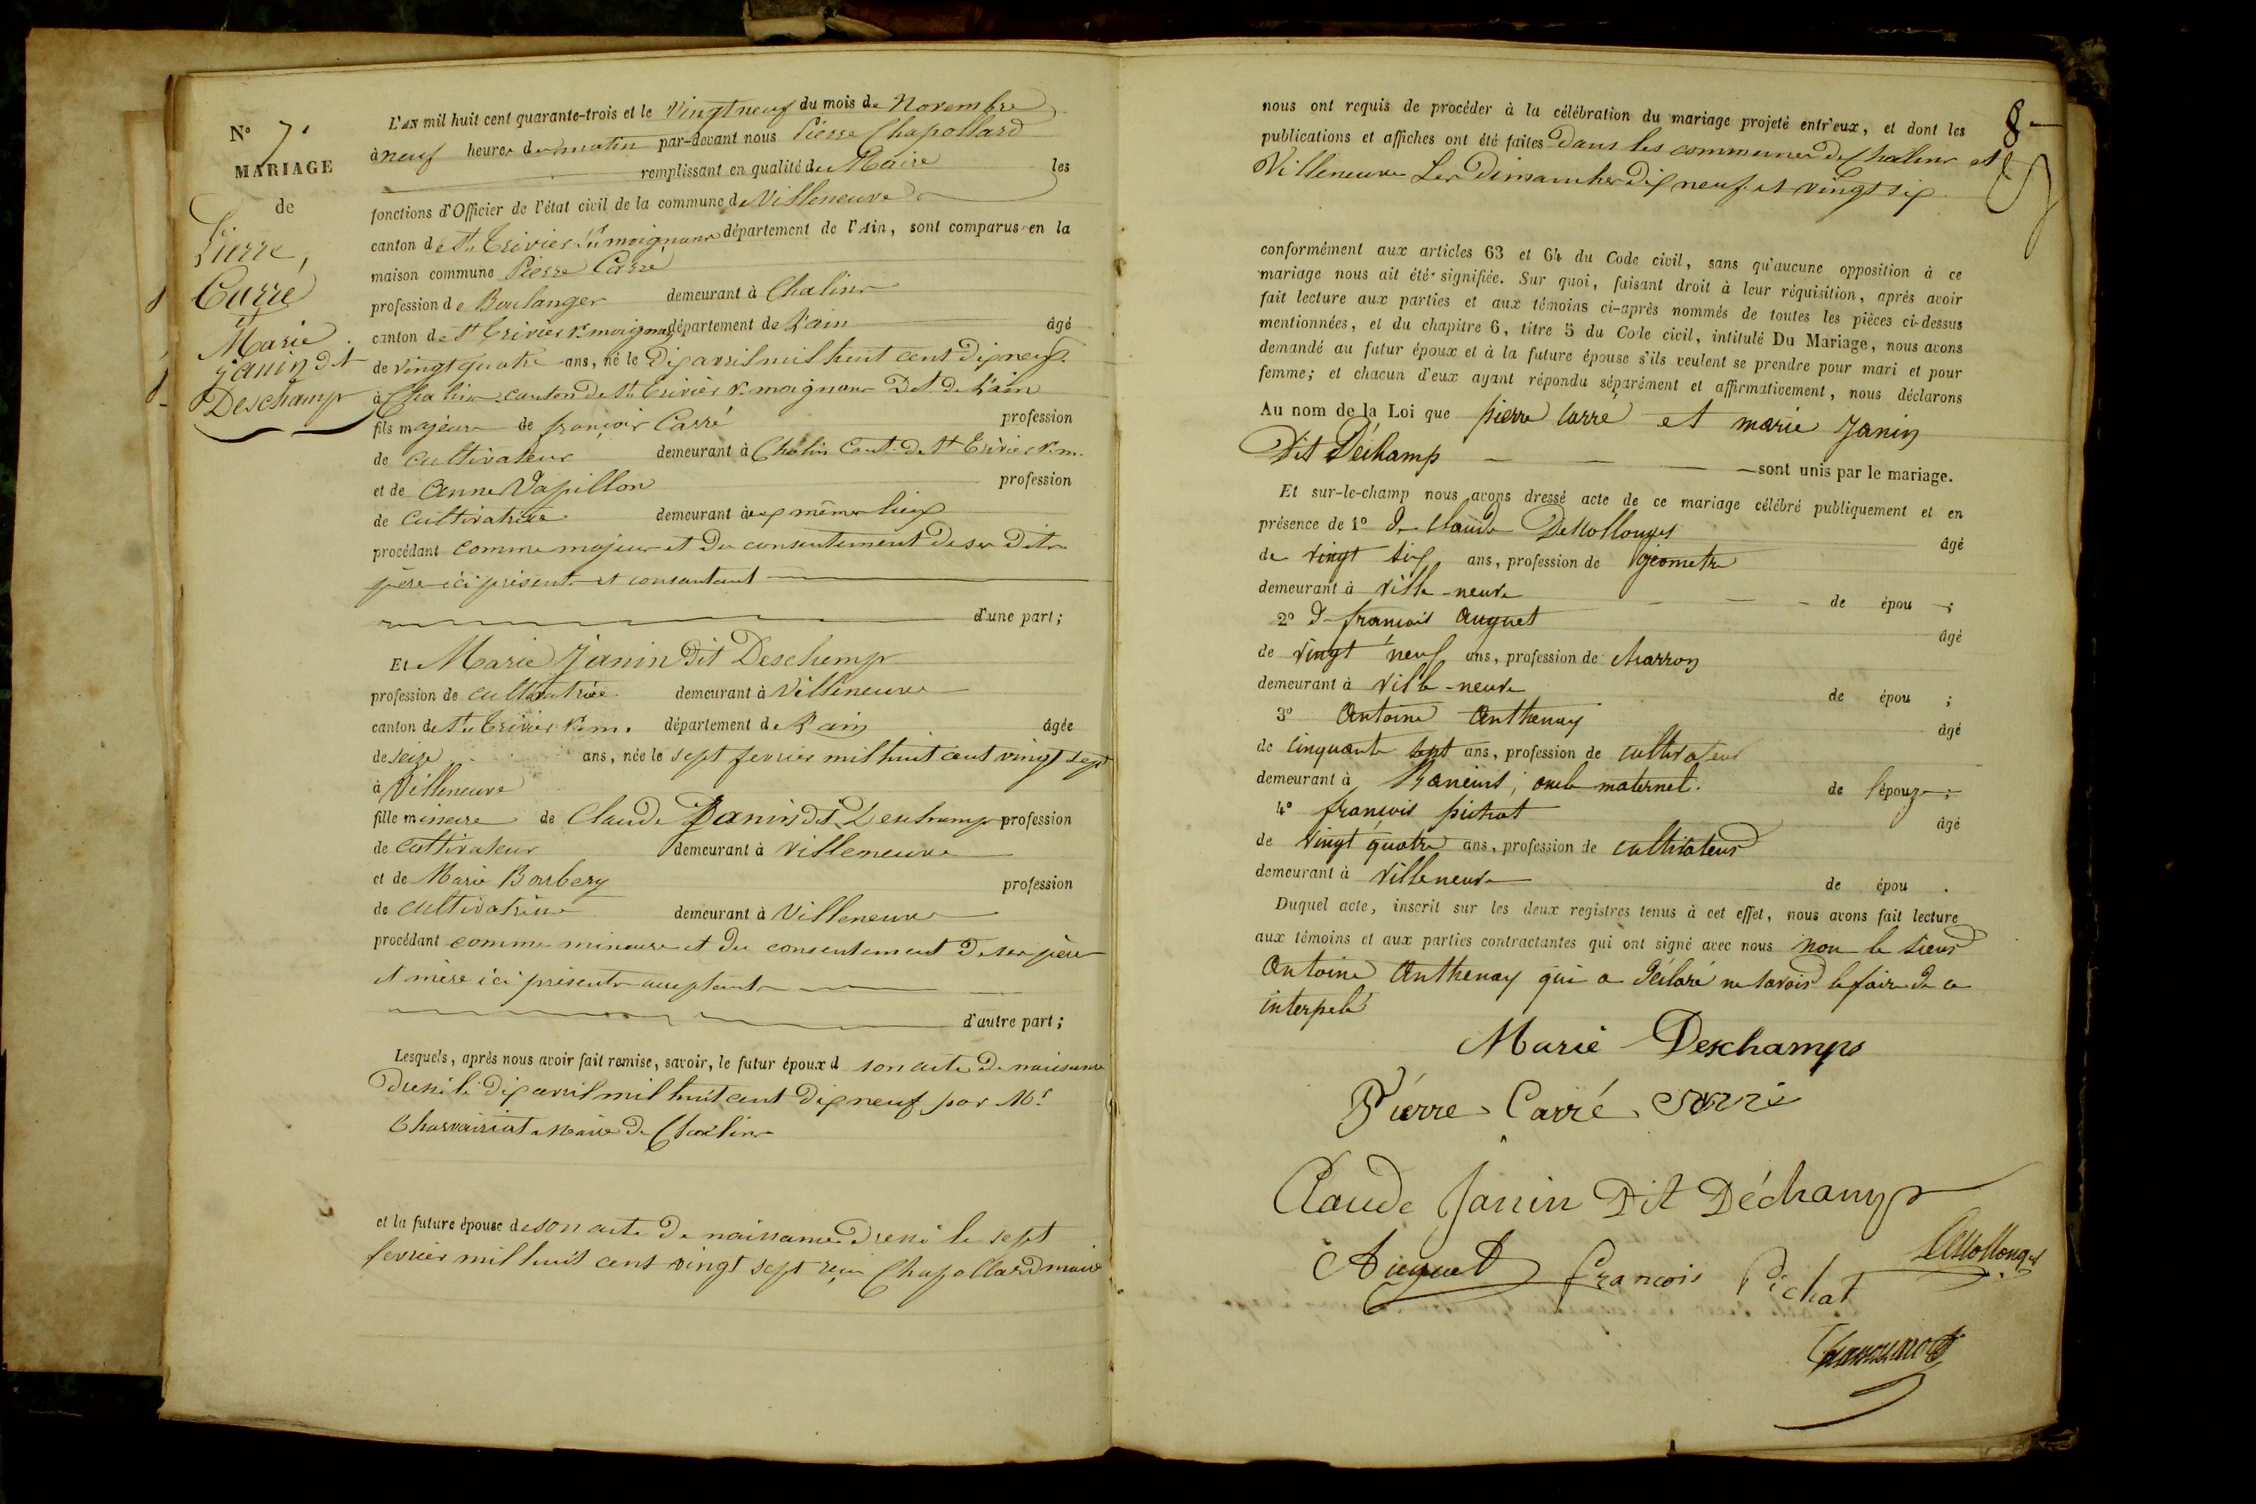 N.o 7.
MARIAGE
de
Pierre
Carré
Marie
janin dt
Deschamp
L'AN mil huit cent quarante-trois et le Vingt neuf du mois de Novembre
à neuf heures du matin par-devant nous Pierre Chapollard
remplissant en qualité de Maire les
fonctions d'Officier de l'état civil de la commune de Villeneuve
canton de St Trivier Sr moignans département de l'Ain, sont comparus en la
maison commune Pierre Carré
profession de Boulanger demeurant à Chalins
canton de St Trivier Sr moignans département de L'ain âgé
de vingt quatre ans, né le Dix avril mil huit cent Dix neuf
à Chalins canton de St Trivier Sr moignans Dt de L'ain
fils majeur de françois Carré profession
de Cultivateur demeurant à Chalins Cant. de St Trivier Sr m.
et de Anne Papillon profession
de Cultivatrice demeurant aux mêmes lieux
procédant comme majeur et du consentement de ses Dits
père ici présent et consentant
d'une part;
Et Marie Janin Dit Deschamp
profession de cultivatrice demeurant à Villeneuve
canton de St Trivier Sr m. département de L'ain âgée
de seize ans, née le sept fevrier mil huit cent vingt sept
à Villeneuve
fille mineure de Claude Janin dit Deschamp profession
de cultivateur demeurant à Villeneuve
et de Marie Barbery profession
de cultivatrice demeurant à Villeneuve
procédant comme mineure et du consentement de ses père
et mère ici présents acceptant
d'autre part;
Lesquels, après nous avoir fait remise, savoir, le futur époux d son acte de naissance
dressé le dix avril mil huit cent dix neuf par Mr
maire de Chalins
et la future épouse de son acte de naissance dressé le sept
fevrier mil huit cent vingt sept reçu Chapollard maire
8
nous ont requis de procéder à la célébration du mariage projeté entr'eux, et dont les
publications et affiches ont été faites Dans les communes de Chalins et
Villeneuve Les Dimanches dix neuf et vingt six
conformément aux articles 63 et 64 du Code civil, sans qu'aucune opposition à ce
mariage nous ait été signifiée. Sur quoi, faisant droit à leur réquisition, après avoir
fait lecture aux parties et aux témoins ci-après nommés de toutes les pièces ci-dessus
mentionnées, et du chapitre 6, titre 5 du Code civil, intitulé Du Mariage, nous avons
demandé au futur époux et à la future épouse s'ils veulent se prendre pour mari et pour
femme; et chacun d'eux ayant répondu séparément et affirmativement, nous déclarons
Au nom de la Loi que pierre Carré et marie Janin
Dit Déchamp sont unis par le mariage.
Et sur-le-champ nous avons dressé acte de ce mariage célébré publiquement et en
présence de 1o de Claude Deskollonges âgé
de vingt six ans, profession de géometre
demeurant à ville-neuve de épou ;
2o D françois Auguet âgé
de vingt neuf ans, profession de charron
demeurant à ville-neuve de épou ;
3o Antoine Anthenay âgé
de cinquante sept ans, profession de cultivateur
demeurant à Raneins, oncle maternel. de l'épouse ;
4o françois pichat âgé
de vingt quatre ans, profession de cultivateur
demeurant à Villeneuve de épou .
Duquel acte, inscrit sur les deux registres tenus à cet effet, nous avons fait lecture
aux témoins et aux parties contractantes qui ont signé avec nous non le sieur
Antoine Anthenay qui a déclaré ne savoir le faire de ce
interpelé
Marie Deschamps
Piérre Carré Carré
Claude Janin Dit Déchamp
Auguet françois Pichat